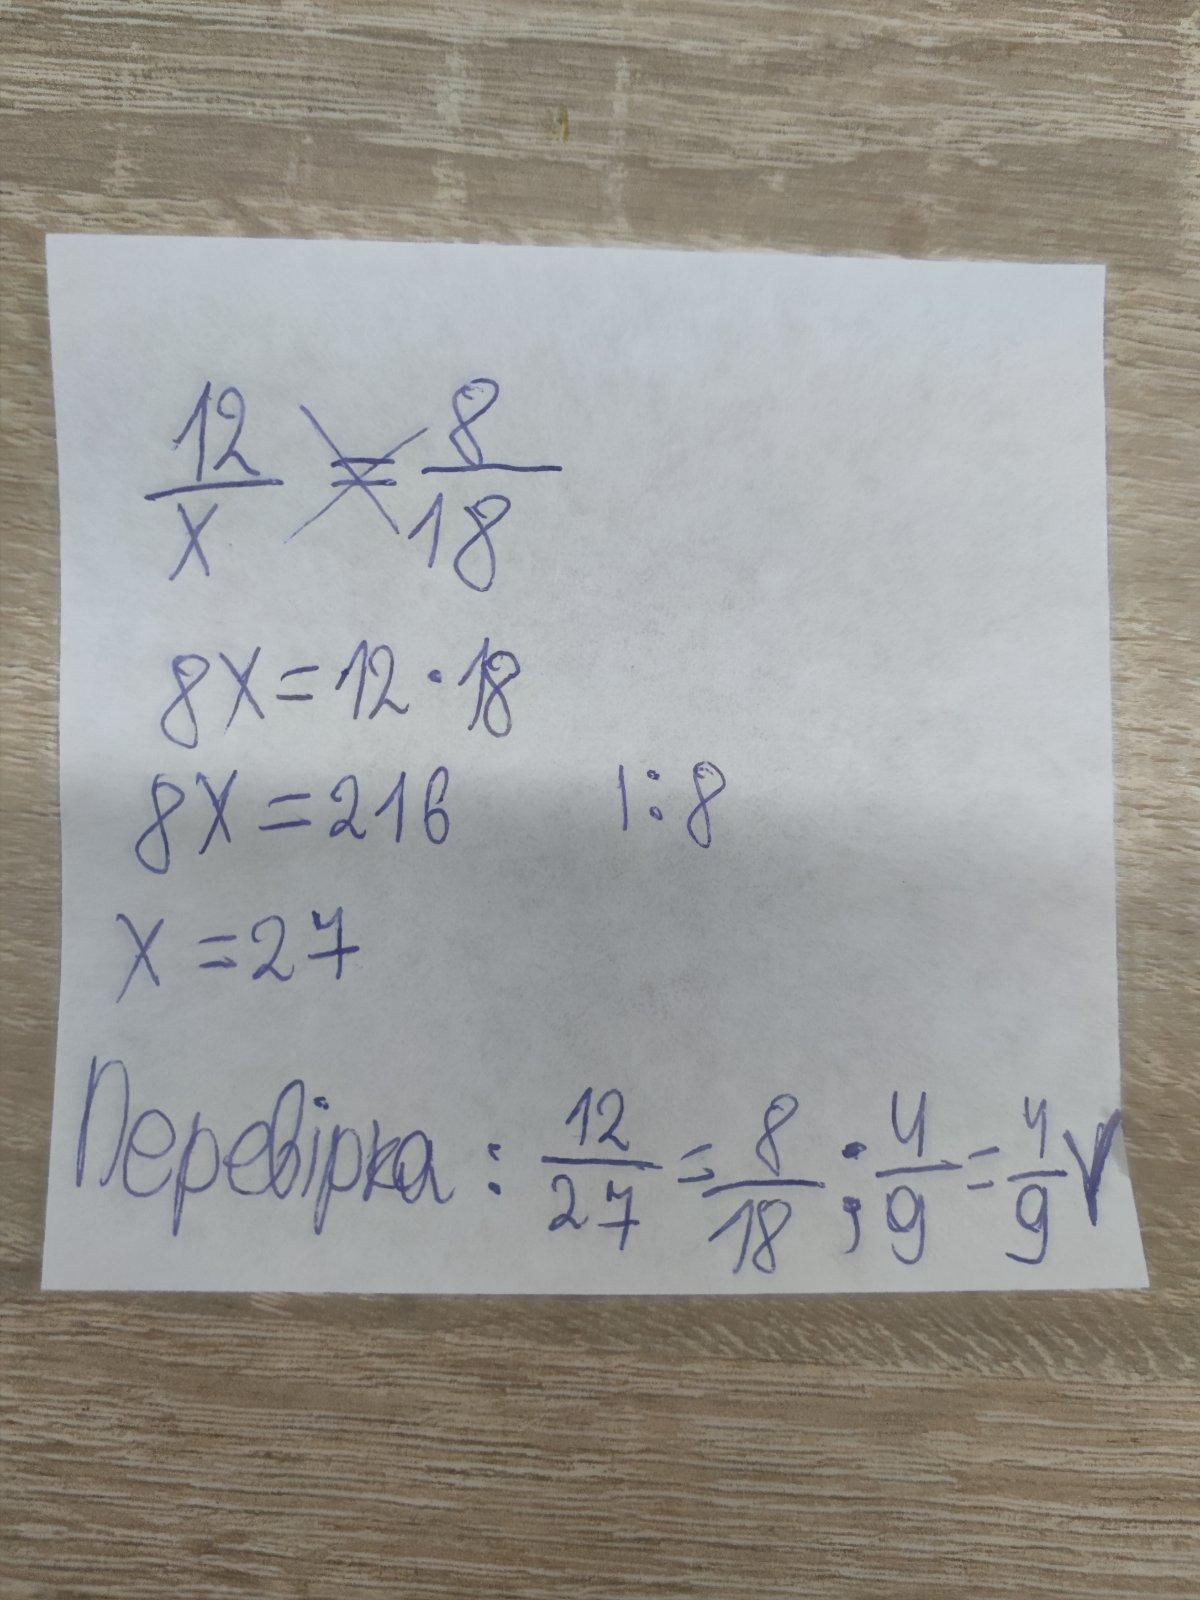 12/x = 8/18
8x = 12 · 18
8x = 216 |:8
x = 27
Перевірка: 12/27 = 8/18 ; 4/9 = 4/9 V